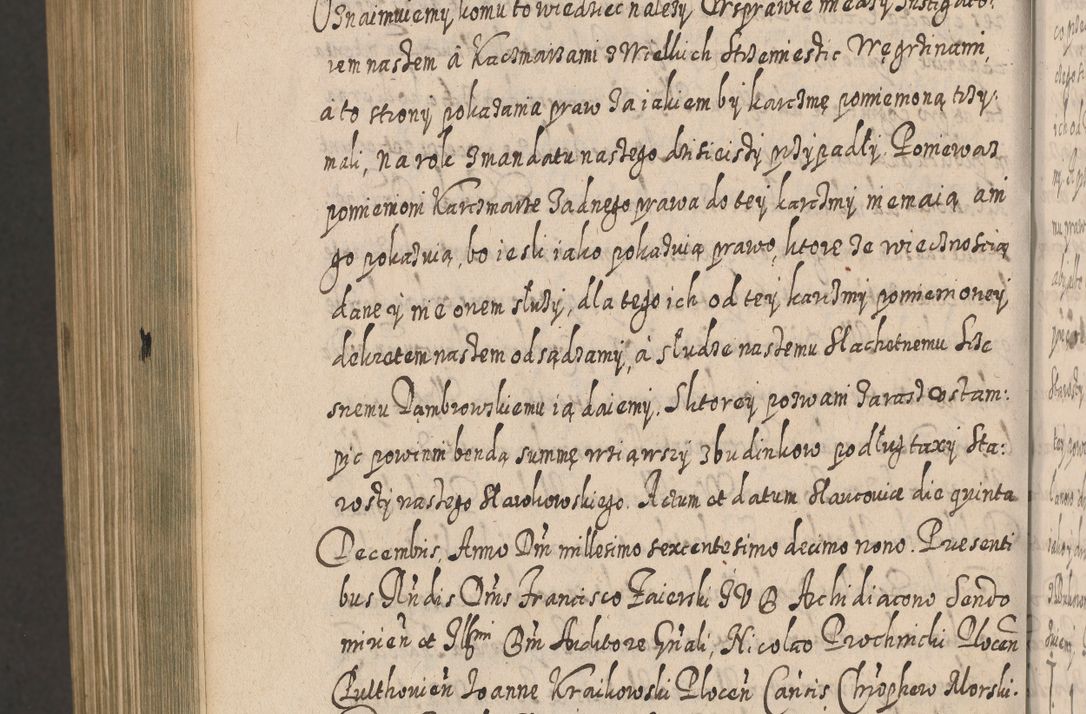 Oznaimuiemy komu to wiedziec nalezy Ze w sprawie miedzy Instigato:
rem naszem á Kaczmarzami z Wielkich Strzemieszic Węgrzinami,
a to strony pokazania praw za iakiem by karczmę pomiemoną trzy:
mali, na rok z mandatu naszego dzisieiszy przypadły. Poniewaz
pomiemoni Karczmarze zadnego prawa do tey karczmy nie maią ani
go pokazuią, bo iesli iako pokazuią prawo, ktore ze wiecznoscią
dane y nie onem służy, dla tego ich od tey karczmy pomiemoney
dekretem naszem odsądzamy, á słudze naszemu Slachetnemu Krzc
snemu Dąmbrowskiemu ią daiemy. S ktorey pozwani zaraz ostam:
pic powinni bendą summę wziąwszy z budinkow podług taxy Sta:
rosty naszego Sławkowskiego. Actum et datum Slaucoviæ die quinta
Decembris, Anno Dni millesimo sexcentesimo decimo nono. Presenti
bus Rndis Dnis Francisco Zaierski IVD Archidiacono Sendo
mirien et Illmi Dni Auditore Gnali, Nicolao Prochnicki Plocen
Pulthovien Joanne Kraikowski Plocen Cancis, Chrophero Morski.